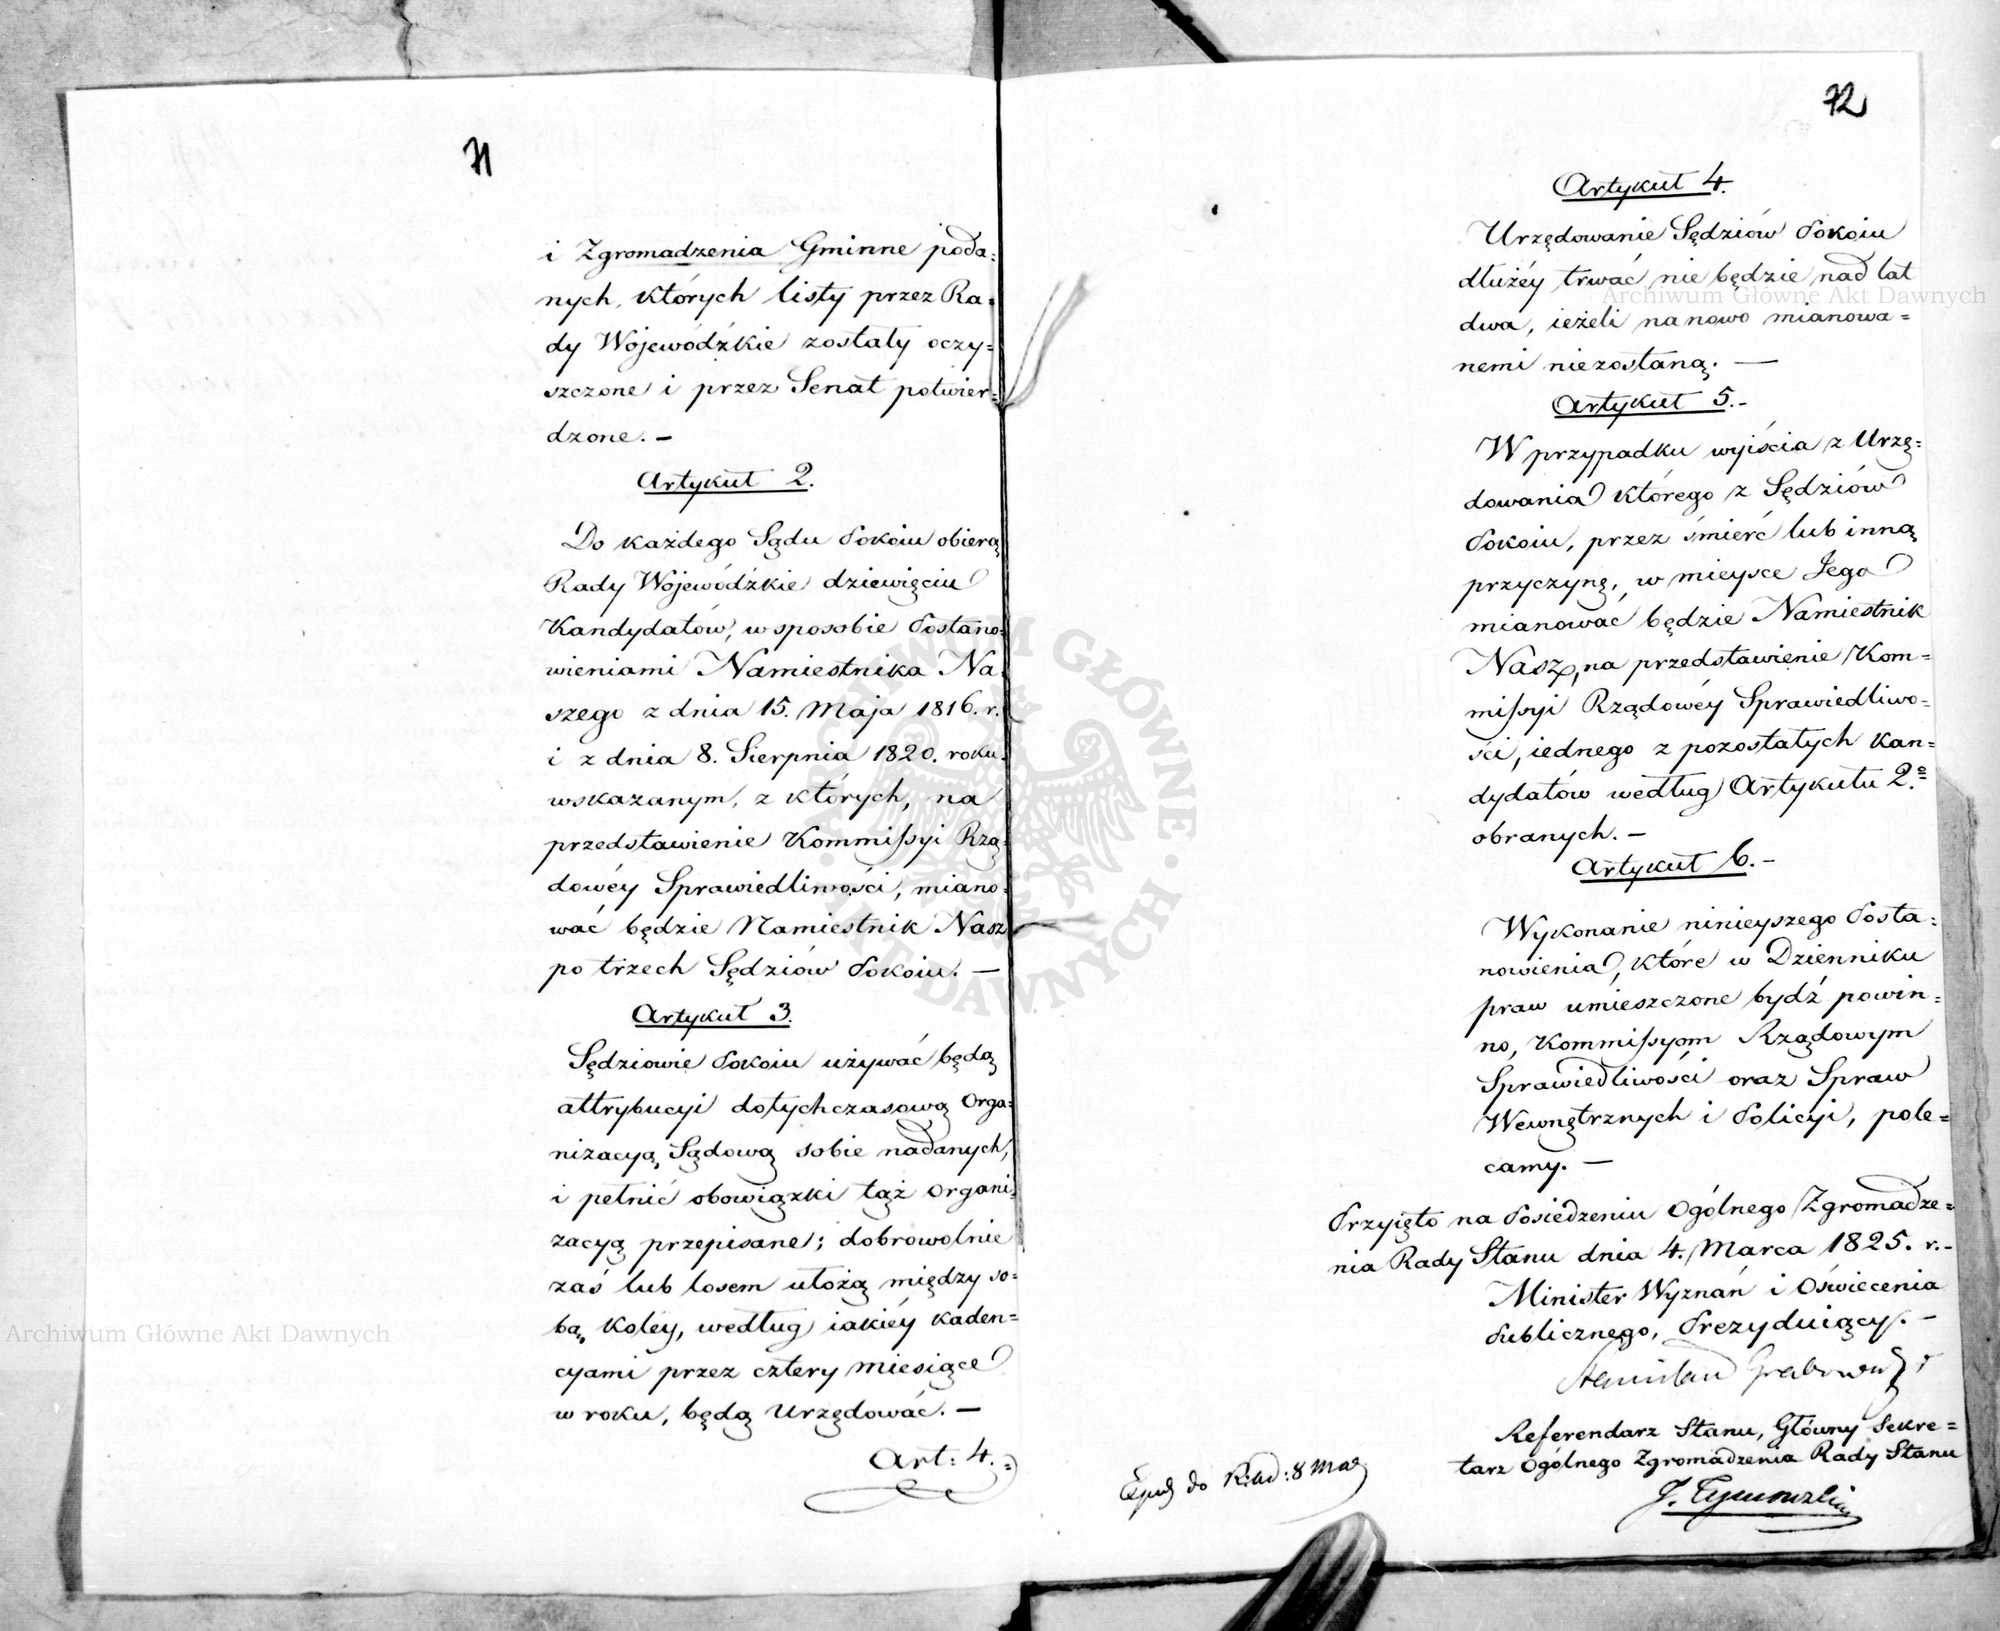 71
i Zgromadzenia Gminne poda=
nych, których listy przez Ra=
dy Wojewódzkie zostały oczy=
szczone i przez Senat potwier=
dzone. —
Artykuł 2.
Do każdego Sądu Pokoiu obiorą
Rady Wojewódzkie dziewięciu
Kandydatów, w sposobie Postano=
wieniami Namiestnika Na=
szego z dnia 15. Maja 1816. r.
i z dnia 8. Sierpnia 1820. roku
wskazanym, z których, na
przedstawienie Kommissyi Rzą=
dowéy Sprawiedliwości, miano=
wać będzie Namiestnik Nasz
po trzech Sędziów Pokoiu. —
Artykuł 3.
Sędziowie Pokoiu używać będą
attrybucyi dotychczasową Orga=
nizacyą Sądową sobie nadanych,
i pełnić obowiązki tąż Organi=
zacyą przepisane; dobrowolnie
zaś lub losem ułożą między so=
bą koley, według iakiéy kaden=
cyami przez cztery miesiące
w roku, będą Urzędować. —
Art: 4.
72
Artykuł 4.
Urzędowanie Sędziów Pokoiu
dłużéy trwać nie będzie nad lat
dwa, ieżeli na nowo mianowa=
nemi niezostaną. —
Artykuł 5. -
W przypadku wyjścia z Urzę=
dowania którego z Sędziów
Pokoiu, przez śmierć lub inną
przyczynę, w mieysce Jego
mianować będzie Namiestnik
Nasz, na przedstawienie Kom=
missyi Rządowéy Sprawiedliwo=
ści, iednego z pozostałych Kan=
dydatów według Artykułu 2º
obranych. —
Artykuł 6. -
Wykonanie ninieyszego Posta=
nowienia, które w Dzienniku
praw umieszczone bydź powin=
no, Kommissyom Rządowym
Sprawiedliwości oraz Spraw
Wewnętrznych i Policyi, pole=
camy. —
Przyięto na Posiedzeniu Ogólnego Zgromadze=
nia Rady Stanu dnia 4. Marca 1825. r. -
Minister Wyznań i Oświecenia
Publicznego, Prezyduiący. —
Stanisław Grabowski
Referendarz Stanu, Główny Sekre=
tarz Ogólnego Zgromadzenia Rady Stanu
J. Tymowski
do 8 Mar
Archiwum Główne Akt Dawnych
Archiwum Główne Akt Dawnych
ARCHIWUM GŁÓWNE · AKT DAWNYCH ·